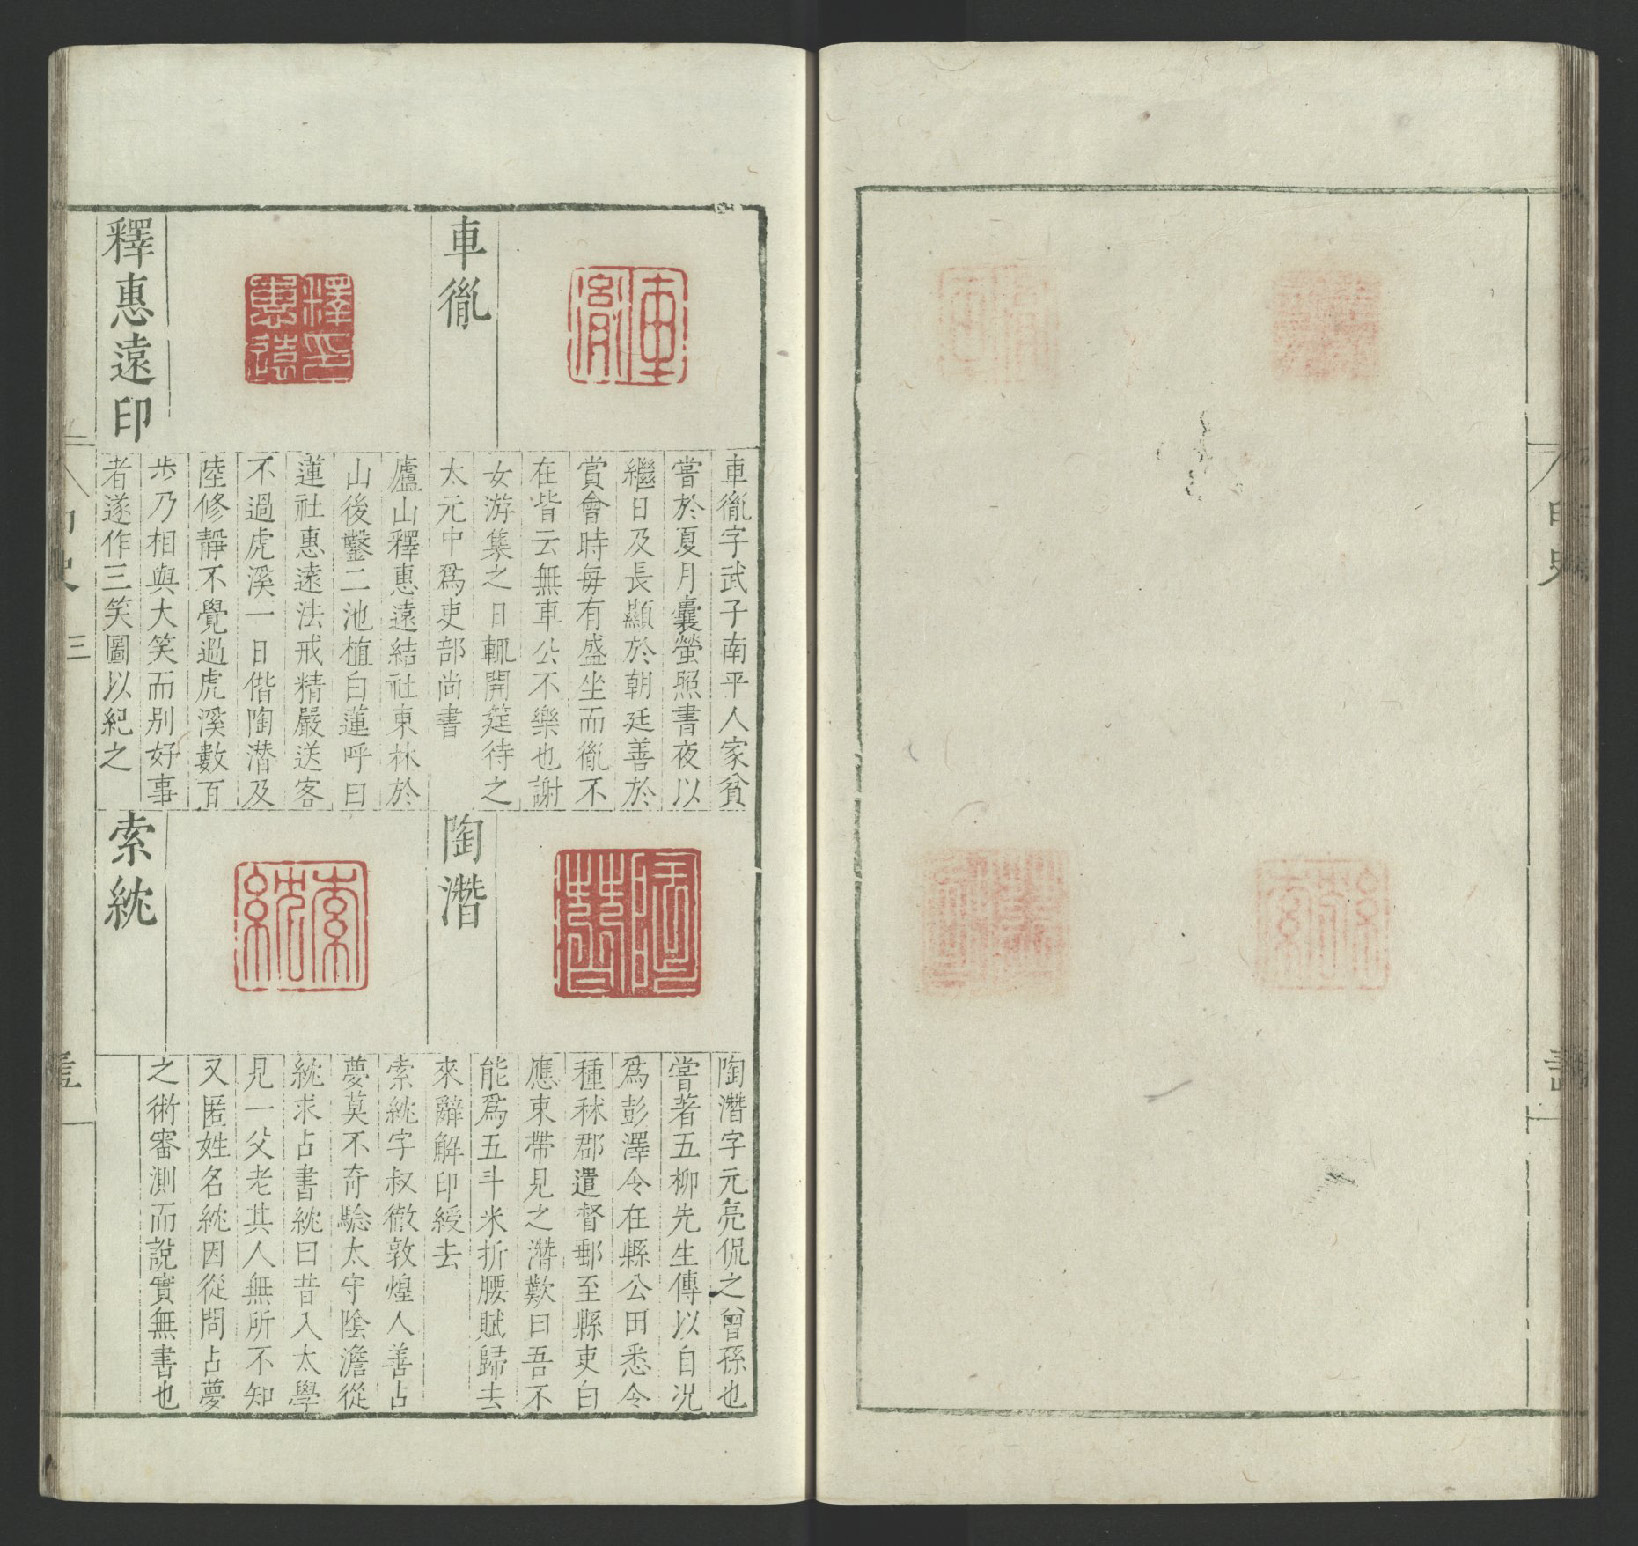 車胤
車胤字武子南平人家貧
嘗於夏月囊螢照書夜以
繼日及長顯於朝廷善於
賞會時每有盛坐而胤不
在皆云無車公不樂也謝
女游集之日輒開筵待之
太元中爲吏部尚書
釋惠遠印
廬山釋惠遠結社東林於
山後鑿二池植白蓮呼曰
蓮社惠遠法戒精嚴送客
不過虎溪一日偕陶潛及
陸修靜不覺過虎溪數百
步乃相與大笑而別好事
者遂作三笑圖以紀之
陶潛
陶潛字元亮侃之曾孫也
嘗著五柳先生傳以自况
爲彭澤令在縣公田悉令
種秫郡遣督郵至縣吏白
應束帶見之潛歎曰吾不
能爲五斗米折腰賦歸去
來辭解印綬去
索紞
索紞字叔徹敦煌人善占
夢莫不奇驗太守陰澹從
紞求占書紞曰昔入太學
見一父老其人無所不知
又匿姓名紞因從問占夢
之術審測而說實無書也
印史
三